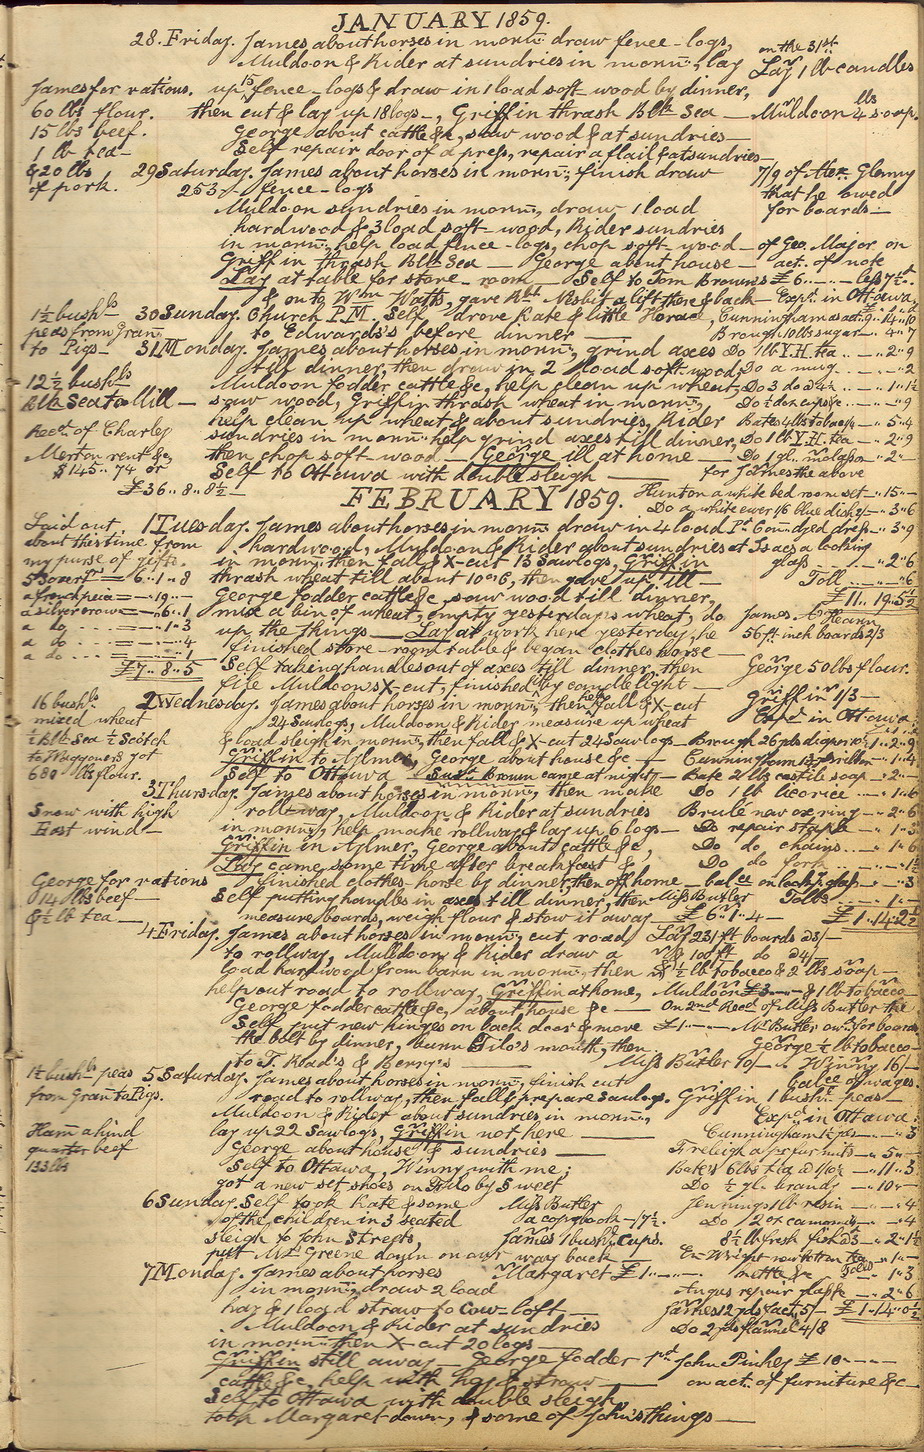 JANUARY 1859.
28. Friday. James about horses in morng. draw fence-logs,
Muldoon & Rider at sundries in morng., lay
on the 31st
Lay 1 lb candles
James for rations.
up 15 fence-logs & draw in 1 load soft-wood by dinner,
60 lbs flour.
then cut & lay up 18 logs -, Griffin thrash Blk Sea —
Muldoon 4 lbs soap.
15 lbs beef.
George about cattle &c, saw wood & at sundries —
1 lb tea —
Self repair door of a press, repair a flail & at sundries —
& 20 lbs
of pork.
29 Saturday. James about horses in morng., finish draw
253 fence-logs
7/9 of Alex. Glenny
that he owed
for boards —
Muldoon sundries in morng., draw 1 load
hardwood & 3 load soft-wood, Rider sundries
in morng., help load fence-logs, chop soft-wood —
of Geo. Major on
Griffin thrash Blk Sea — George about house —
act. of note
Lay at table for store-room — Self to Tom Brown's
£6 .. — .. — less 7½d.
& on to Wm. Watts, gave Robt. Nesbit a lift there & back —
Expd. in Ottawa,
1½ bushls
peas from Gran.
to Pigs —
30 Sunday. Church P.M. Self drove Kate & little Horace,
to Edwards's before dinner
Cunningham as act. 9 .. 14 .. 10
Brough 10 lbs sugar — 4 .. 7
31 Monday. James about horses in morng., grind axes
Do 1 lb Y.H. tea .. — .. 2 .. 9
till dinner, then draw in 2 load soft-wood,
Do a mug .. — .. — .. 2
12½ bushls
Blk Sea to Mill —
Muldoon fodder cattle &c, help clean up wheat,
saw wood, Griffin thrash wheat in morng.,
help clean up wheat & about sundries, Rider
Bate 4 lbs tobacco — 5 .. 4
Recd. of Charley
Merton rent &c
$145 .. 74 or
£36 .. 8 .. 8½ —
sundries in morng. help grind axes till dinner,
Do 1 lb Y.H. tea — 2 .. 9
then chop soft-wood — George ill at home —
Do 1 gl. molasses — 2 .. —
Self to Ottawa with double sleigh —
for James the above
FEBRUARY 1859.
Hunton a white bed room set — 15 —
Do a white ewer 1/6 blue dish 2/- — 3 .. 6
Laid out
about this time from
my purse of gifts.
5 Soverns = 6 .. 1 .. 8
a french piece = — 19 .. —
a silver crown = — 6 .. 1
a do .. = — 1 .. 3
a do .. = — .. — 4
a do .. = — .. — 1
£7 .. 8 .. 5
1 Tuesday. James about horses in morng. draw in 4 load
hardwood, Muldoon & Rider about sundries
at Isaacs a looking
glass — 2 .. 6
in morng. then fall & X-cut 13 Sawlogs, Griffin
thrash wheat till about 10 oc., then gave up ill —
Toll .. — .. 6
£11 .. 19 .. 5½
George fodder cattle &c, saw wood till dinner,
mix a bin of wheat, empty yesterday's wheat, do
up the things — Lay at work here yesterday, he
James A'Hearn
56 ft. inch boards 2/3
finished store-room table & began clothes horse —
Self taking handles out of axes till dinner, then
George 50 lbs flour.
file Muldoon's X-cut, finished by candle light —
16 bushls
mixed wheat
½ Blk Sea ½ Scotch
to Waggoners got
680 lbs flour.
2 Wednesday. James about horses in morng., then help fall & X-cut
24 Sawlogs, Muldoon & Rider measure up wheat
Griffin 1/3 —
Expd. in Ottawa.
& load sleigh in morng., then fall & X-cut 24 Saw logs —
Griffin to Aylmer, George about house &c —
Self to Ottawa — Susn. Brown came at night —
Bate 2 lbs castile soap — 2 .. —
3 Thursday. James about horses in morng., then make
Do 1 lb licorice — 1 .. 6
Snow with high
East wind —
rollway, Muldoon & Rider at sundries
Brulé new ox ring — 2 .. 6
in morng., help make rollway & lay up 6 logs —
Do repair staple — 1 .. 3
Griffin in Aylmer, George about cattle &c,
Do do chains — 1 .. 6
Lay came some time after breakfast &
Do do fork — .. 1½
George for rations
14 lbs beef —
& ½ lb tea —
finished clothes-horse by dinner, then off home —
balce. on lookg. glass — .. 3
Self putting handles in axes till dinner, then
Miss Butler
£6 .. 1 .. 4 —
Tolls — 1 —
measure boards, weigh flour & stow it away
£1 .. 14 .. 2½
4 Friday. James about horses in morng., cut road
Lay 231 ft boards @ 3/-
to rollway, Muldoon & Rider draw a
& 100 ft do @ 4/-
load hardwood from barn in morng., then
& ½ lb tobacco & 2 lbs soap —
help cut road to rollway, Griffin at home,
Muldoon £3 — & 1 lb tobacco —
George fodder cattle &c, about house &c —
On 2nd Recd. of Miss Butler the
Self put new hinges on back door & move
£1 — — Mr Butler owd. for boards
the bolt by dinner, burn Filo's mouth, then
George ½ lb tobacco —
to T. Read's & Berry's —
Miss Butler 10/- .. Winny 16/-
balce. of wages
1½ bushls peas
from Gran. to Pigs.
5 Saturday. James about horses in morng., finish cut
road to rollway, then fall & prepare Sawlogs.
Griffin 1 bushl. peas —
Muldoon & Rider about sundries in morng.,
Expd. in Ottawa.
Ham a hind
quarter beef
133 lbs
lay up 22 Sawlogs, Griffin not here —
George about house & sundries —
Self to Ottawa, Winny with me;
Bate's 6 lbs tea @ 1/10½ — 11 .. 3
got a new set shoes on Filo by Sweet
Do ½ gl. brandy — 10 —
6 Sunday. Self took Kate & some
of the children in 3 seated
sleigh to John Street's,
put Mr. Greene down on our way back
Miss Butler
a copy book — /7½.
James 1 bushl., Caps.
Jennings 1 lb resin — .. 4
8½ lb fresh fish @ 3 — 2 .. 1½
7 Monday. James about horses
in morng., draw 2 load
hay & 1 load straw to cow-loft —
Margaret £1 .. — ..
Angus repair flask — 2 .. 6
£1 .. 14 .. 0½
Muldoon & Rider at sundries
in morng. then X-cut 20 logs —
Do 2 yds flannel 4/8
Griffin still away — George fodder
cattle &c, help with hay & straw —
Pd. John Pinkey £10 — — —
on act. of furniture &c —
Self to Ottawa with double sleigh
took Margaret down, & some of John's things —